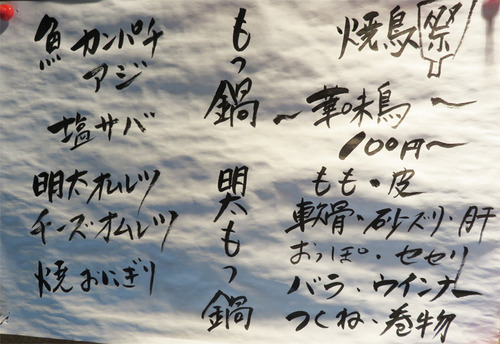 焼鳥祭
〜華味鳥〜
100円〜
もも・皮
軟骨・砂ズリ・肝
おっぽ・セセリ
バラ・ウインナー
つくね・巻物
もつ鍋
明太もつ鍋
魚カンパチ
アジ
塩サバ
明太オムレツ
チーズオムレツ
焼おにぎり